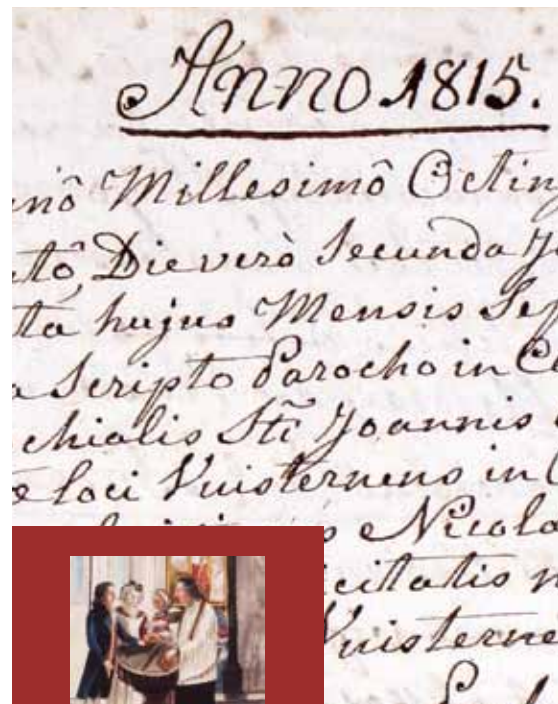 Anno 1815.
nô Millesimô Octin
tô, Die verò Secunda J
ta hujus Mensis Sep
a Scripto Parocho in C
chialis Sti Joannis
loci Vuisternens in
Nicola
icitatis n
Vuisterne